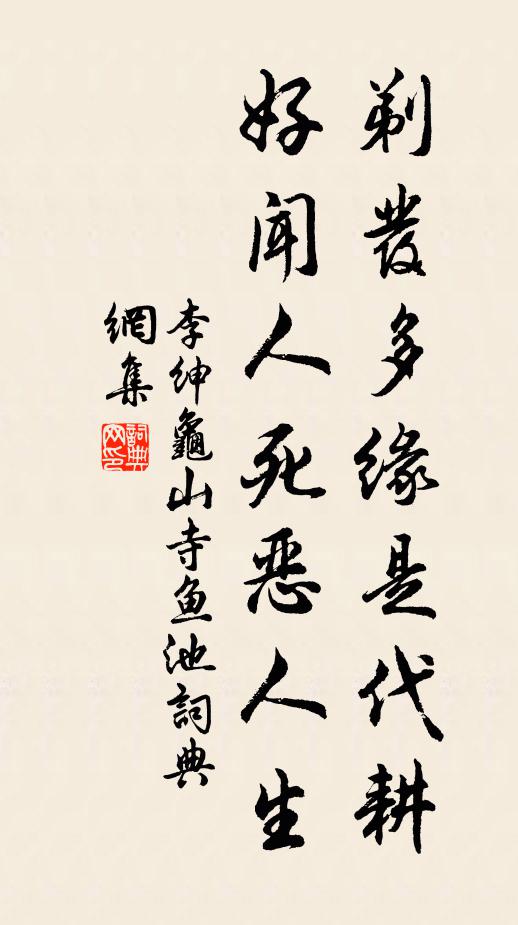 剃發多緣是代耕
好聞人死恶人生
李紳龜山寺鱼池詞典
網集
詞典
网印